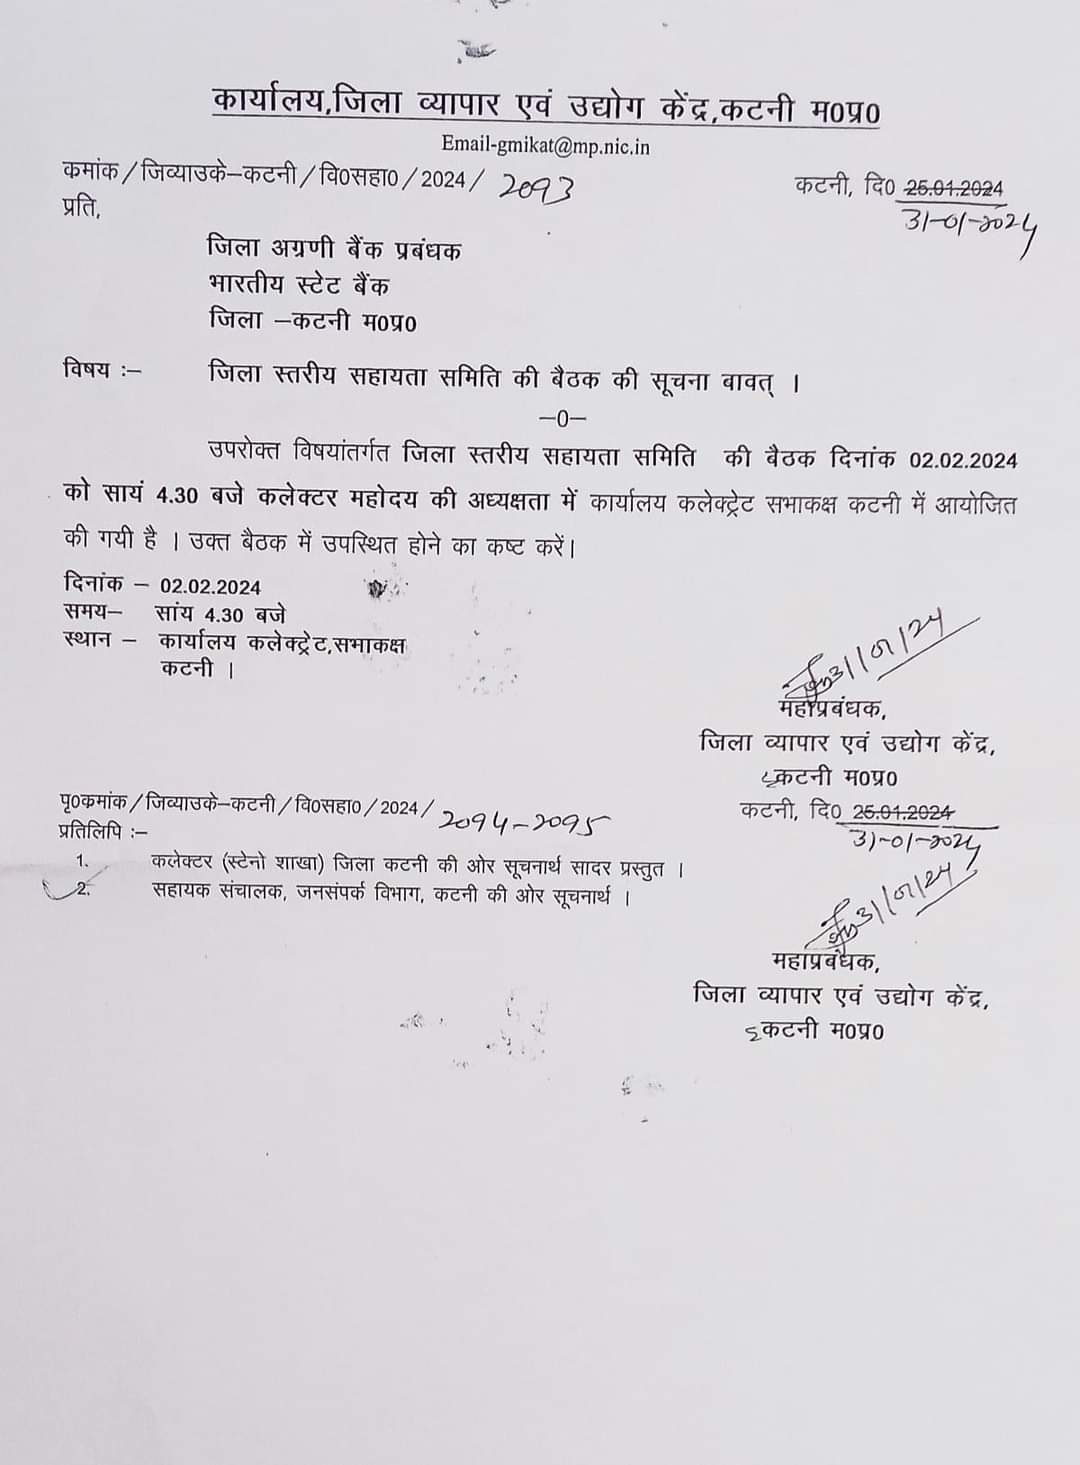 कार्यालय,जिला व्यापार एवं उद्योग केंद्र,कटनी म0प्र0
Email-gmikat@mp.nic.in
कमांक/जिव्याउके–कटनी/वि0सहा0/2024/ 2093
कटनी, दि0 25.01.2024
31-01-2024
प्रति,
जिला अग्रणी बैंक प्रबंधक
भारतीय स्टेट बैंक
जिला –कटनी म0प्र0
विषय :– जिला स्तरीय सहायता समिति की बैठक की सूचना बावत् ।
–0–
उपरोक्त विषयांतर्गत जिला स्तरीय सहायता समिति की बैठक दिनांक 02.02.2024
को सायं 4.30 बजे कलेक्टर महोदय की अध्यक्षता में कार्यालय कलेक्ट्रेट सभाकक्ष कटनी में आयोजित
की गयी है । उक्त बैठक में उपस्थित होने का कष्ट करें।
दिनांक – 02.02.2024
समय– सांय 4.30 बजे
स्थान – कार्यालय कलेक्ट्रेट,सभाकक्ष
कटनी ।
31/01/24
महाप्रबंधक,
जिला व्यापार एवं उद्योग केंद्र,
कटनी म0प्र0
पृ0कमांक/जिव्याउके–कटनी/वि0सहा0/2024/ 2094-2095
कटनी, दि0 25.01.2024
31-01-2024
प्रतिलिपि :–
1. कलेक्टर (स्टेनो शाखा) जिला कटनी की ओर सूचनार्थ सादर प्रस्तुत ।
2. सहायक संचालक, जनसंपर्क विभाग, कटनी की ओर सूचनार्थ ।
31/01/24
महाप्रबंधक,
जिला व्यापार एवं उद्योग केंद्र,
कटनी म0प्र0